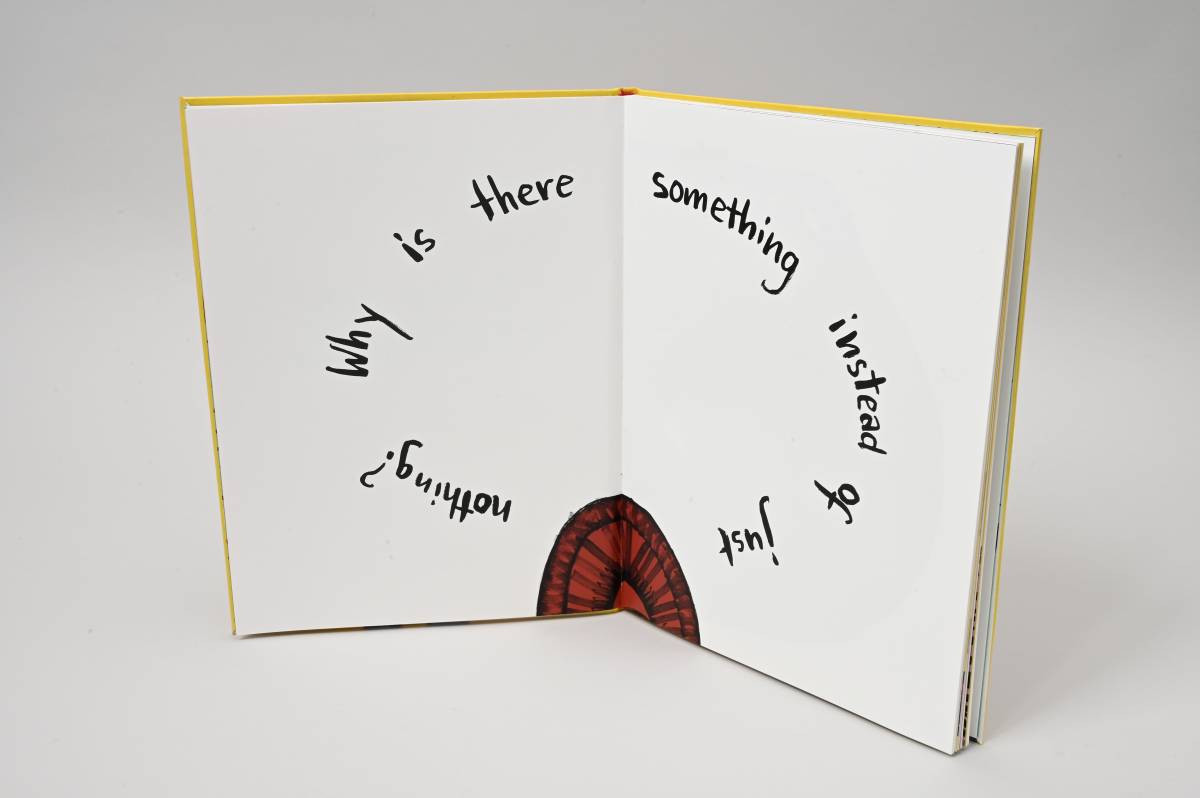 Why is there something instead of just nothing?